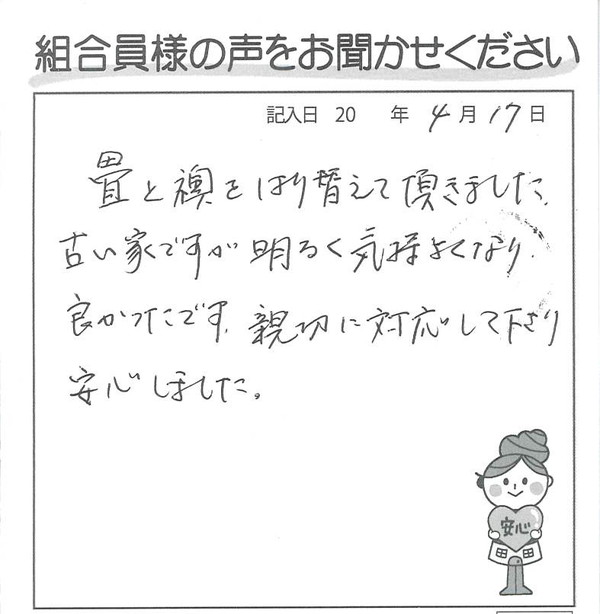 組合員様の声をお聞かせください
記入日 20　年 4 月 17 日
畳と襖をはり替えて頂きました、
古い家ですが明るく気持よくなり、
良かったです、親切に対応して下さり
安心しました。
安心